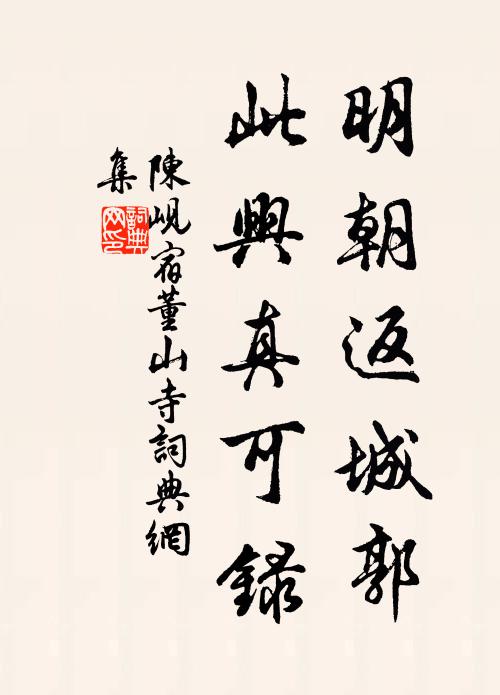 明朝返城郭
此興真可錄
陳峴宿董山寺詞典網
集
詞典
网印